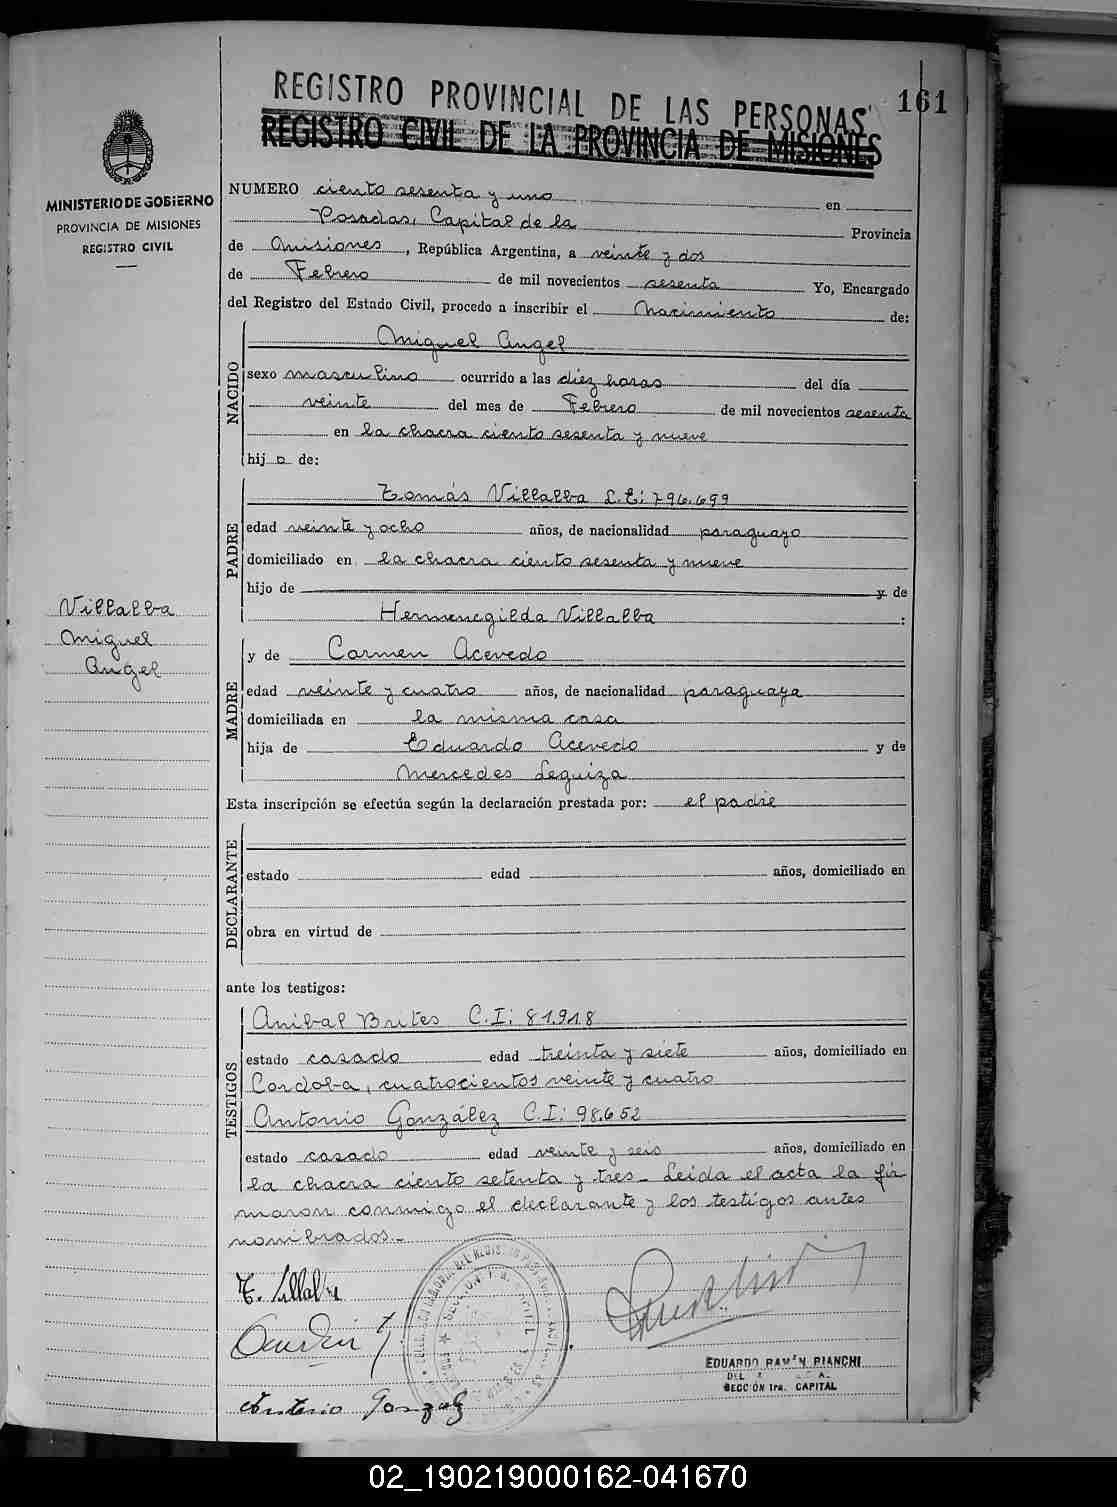 REGISTRO PROVINCIAL DE LAS PERSONAS
161
REGISTRO CIVIL DE LA PROVINCIA DE MISIONES
MINISTERIO DE GOBIERNO
PROVINCIA DE MISIONES
REGISTRO CIVIL
NUMERO ciento sesenta y uno en
Posadas, Capital de la Provincia
de Misiones, República Argentina, a veinte y dos
de Febrero de mil novecientos sesenta Yo, Encargado
del Registro del Estado Civil, procedo a inscribir el Nacimiento de:
NACIDO
Miguel Angel
sexo masculino ocurrido a las diez horas del día
veinte del mes de Febrero de mil novecientos sesenta
en la chacra ciento sesenta y nueve
hijo de:
PADRE
Tomás Villalba L.E: 796.699
edad veinte y ocho años, de nacionalidad paraguayo
domiciliado en la chacra ciento sesenta y nueve
hijo de y de
Hermenegilda Villalba :
Villalba
Miguel
Angel
MADRE
y de Carmen Acevedo
edad veinte y cuatro años, de nacionalidad paraguaya
domiciliada en la misma casa
hija de Eduardo Acevedo y de
Mercedes Leguiza
Esta inscripción se efectúa según la declaración prestada por: el padre
DECLARANTE
estado edad años, domiciliado en
obra en virtud de
ante los testigos:
TESTIGOS
Anibal Brites C.I: 81.918
estado casado edad treinta y siete años, domiciliado en
Cordoba, cuatrocientos veinte y cuatro
Antonio González C.I: 98.652
estado casado edad veinte y seis años, domiciliado en
la chacra ciento setenta y tres_ Leida el acta la fir
maron conmigo el declarante y los testigos antes
nombrados._
T. Villalba
Antonio Gonzalz
EDUARDO RAMÓN BIANCHI
SECCIÓN 1ra. CAPITAL
02_190219000162-041670